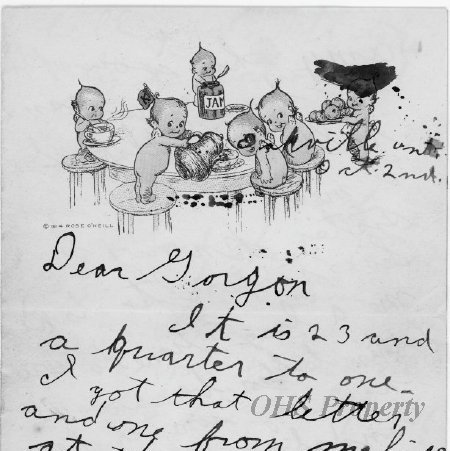 JAM
© 1914 ROSE O'NEILL
Oct 2nd.
Dear Gorgon
It is 23 and
a quarter to one.
I got that letter
and one from
OHS Property